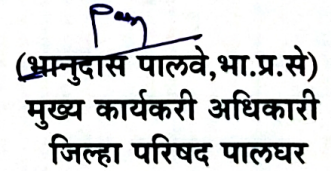 (भानुदास पालवे,भा.प्र.से)
मुख्य कार्यकरी अधिकारी
जिल्हा परिषद पालघर